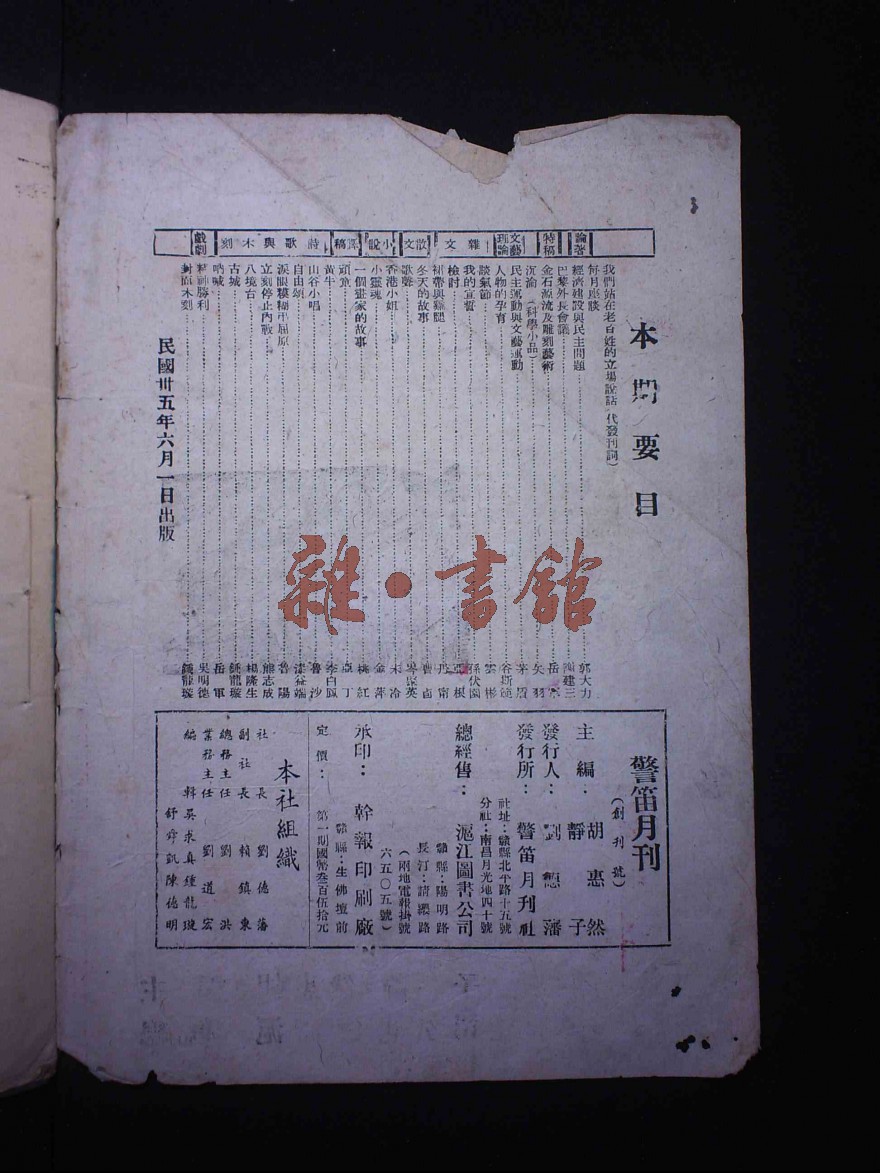 本期要目
論著
特稿
文藝理論
雜文
散文
小說
譯稿
詩歌與木刻
戲劇
我們站在老百姓的立場說話(代發刊詞)
每月座談
經濟建設與民主問題 郭大力
巴黎外長會議 建三
金石源流及雕刻藝術 岳
沉淪(科學小品) 矢羽
民主運動與文藝運動 茅盾
人物的孕育 谷斯範
談氣節 雲彬
我的宣誓 孫伏園
檢討 亞根
裙帶與羅腿
冬天的故事 曹
歌聲 英
香港小姐 未冷
小靈魂 金萍
一個畫家的故事 桃紅
頑童 亞丁
黃牛 李白鳳
山谷小唱 魯沙
自由頌 漆益端
淚眼糢糊弔屈原 魯陽
立刻停止內戰 熊志成
八境台 楊隆生
古城 鍾龍璇
吶喊 岳軍
精神勝利 吳明德
封面木刻 鍾龍璇
民國卅五年六月一日出版
警笛月刊
(創刊號)
主編:胡惠然
靜子
發行人:劉德藩
發行所:警笛月刊社
社址:贛縣北平路十五號
分社:南昌月光地四十號
總經售:滬江圖書公司
贛縣:陽明路
長汀:請纓路
(兩地電報掛號
六五〇五號)
承印:幹報印刷廠
贛縣:生佛壇前
定價:第一期國幣叁百伍拾元
本社組織
社長 劉德藩
副社長 賴鎮東
總務主任 劉洪
業務主任 劉道宏
編輯 吳求真 鍾龍璇
舒舜凱 陳德明
雜·書館